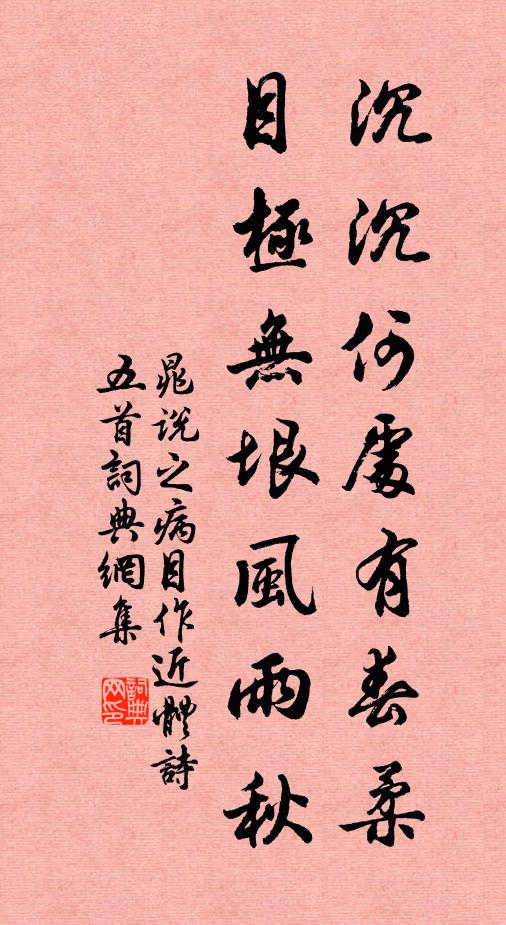 沉沉何處有春柔
目極無垠風雨秋
晁說之病目作近體詩
五首詞典網集
詞典
网印